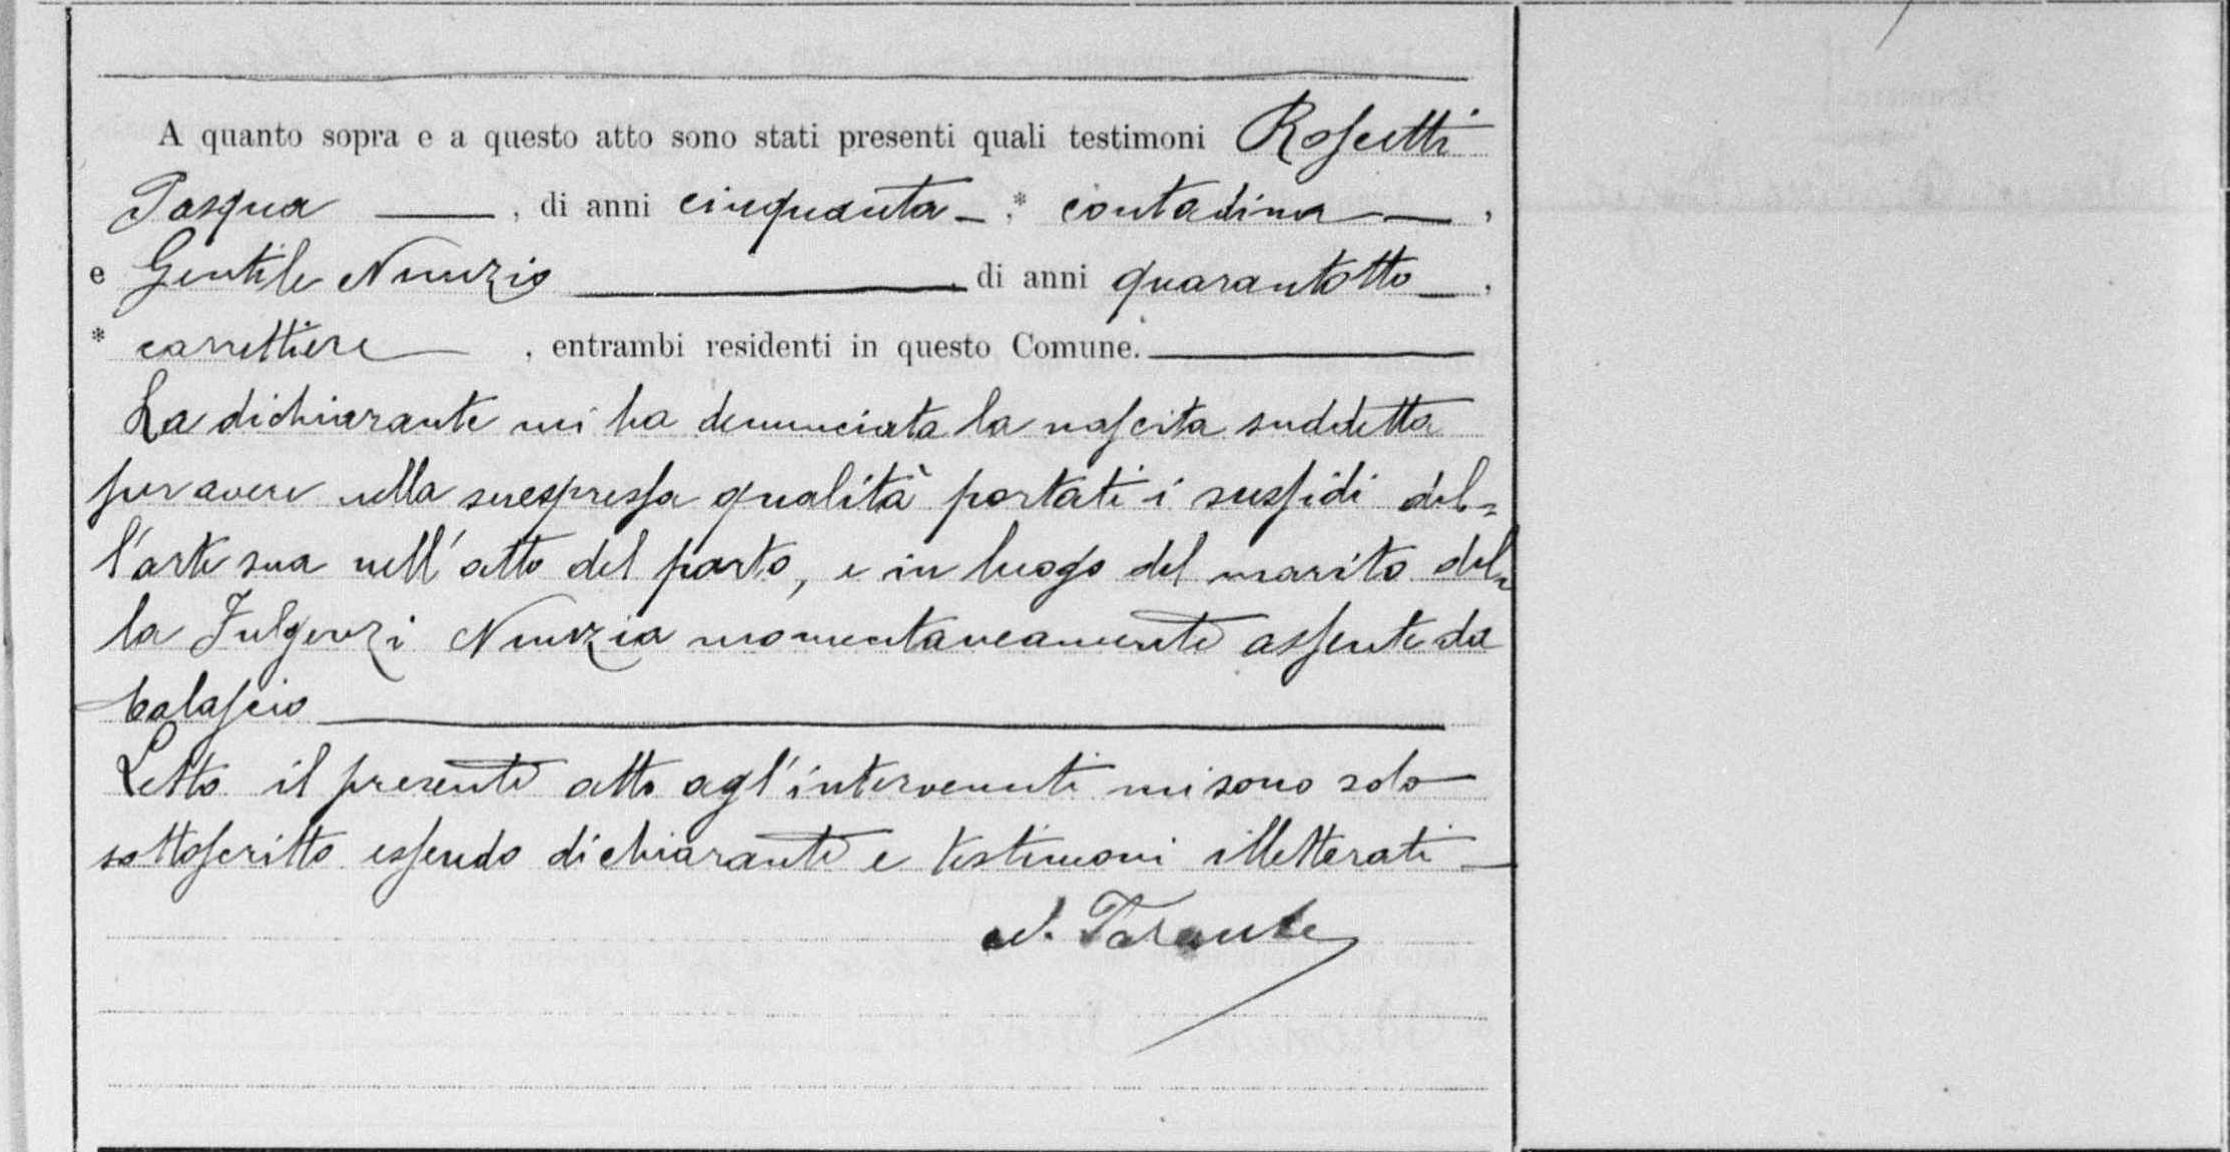 A quanto sopra e a questo atto sono stati presenti quali testimoni Roscetti
Pasqua , di anni cinquanta , * contadina ,
e Gentile Nunzio di anni quarantotto ,
* carrettiere , entrambi residenti in questo Comune.
La dichiarante mi ha denunciata la nascita suddetta
per avere nella suespressa qualità portati i sussidi del=
l'arte sua nell'atto del parto, e in luogo del marito del=
la Fulgenzi Nunzia momentaneamente assente da
Calascio
Letto il presente atto agl'intervenuti mi sono solo
sottoscritto essendo dichiarante e testimoni illetterati
Tarante